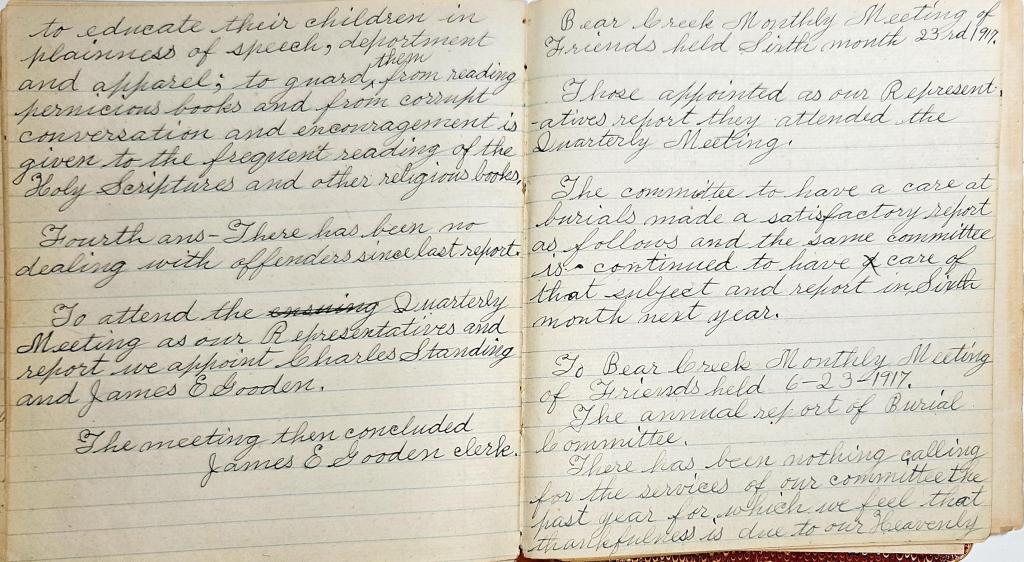 to educate their children in
plainness of speech, deportment
and apparel; to guard them from reading
pernicious books and from corrupt
conversation and encouragement is
given to the frequent reading of the
Holy Scriptures and other religious books.
Fourth ans- There has been no
dealing with offenders since last report.
To attend the ensuing Quarterly
Meeting as our Representatives and
report we appoint Charles Standing
and James E Gooden.
The meeting then concluded
James E Gooden clerk.
Bear Creek Monthly Meeting of
Friends held Sixth month 23rd 1917.
Those appointed as our Represent-
-atives report they attended the
Quarterly Meeting.
The committee to have a care at
burials made a satisfactory report
as follows and the same committee
is continued to have a care of
that subject and report in Sixth
month next year.
To Bear Creek Monthly Meeting
of Friends held 6-23-1917.
The annual report of Burial
Committee.
There has been nothing calling
for the services of our committee the
past year for which we feel that
thankfulness is due to our Heavenly